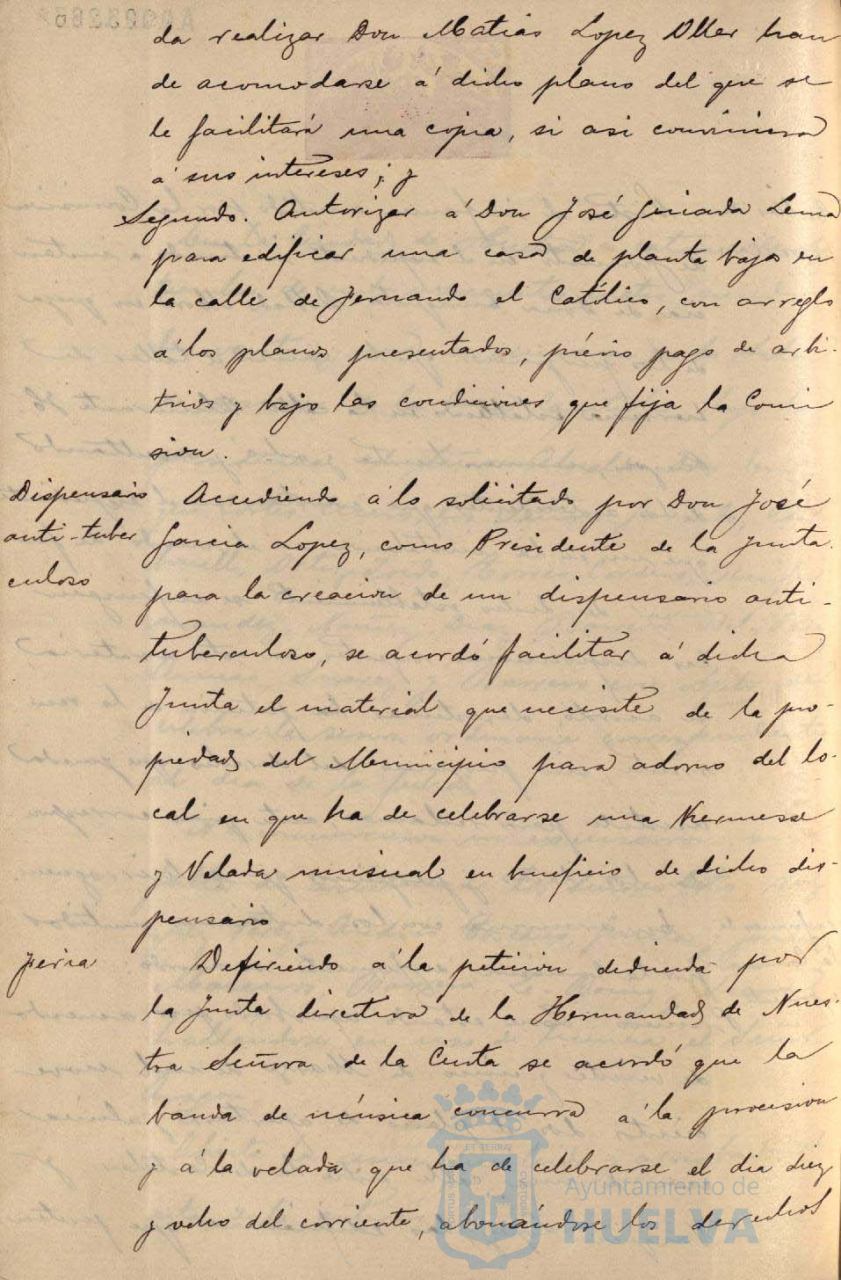 da realizar Don Matias Lopez Oller han
de acomodarse á dicho plano del que se
le facilitará una copia, si asi conviniera
á sus intereses; y
Segundo. Autorizar á Don José Quesada Lema
para edificar una casa de planta baja en
la calle de Fernando el Católico, con arreglo
á los planos presentados, prévio pago de arbi-
trios y bajo las condiciones que fija la Comi
sion.
Dispensario
anti-tuber
culoso
Accediendo á lo solicitado por Don José
Garcia Lopez, como Presidente de la Junta
para la creacion de un dispensario anti-
tuberculoso, se acordó facilitar á dicha
Junta el material que necesite de la pro-
piedad del Municipio para adorno del lo-
cal en que ha de celebrarse una Kermesse
y Velada musical en beneficio de dicho dis-
pensario
Feria
Defiriendo á la peticion deducida por
la Junta directiva de la Hermandad de Nues-
tra Señora de la Cinta se acordó que la
banda de música concurra á la procesion
y á la velada que ha de celebrarse el dia diez
y ocho del corriente, abonándose los derechos
Ayuntamiento de
HUELVA